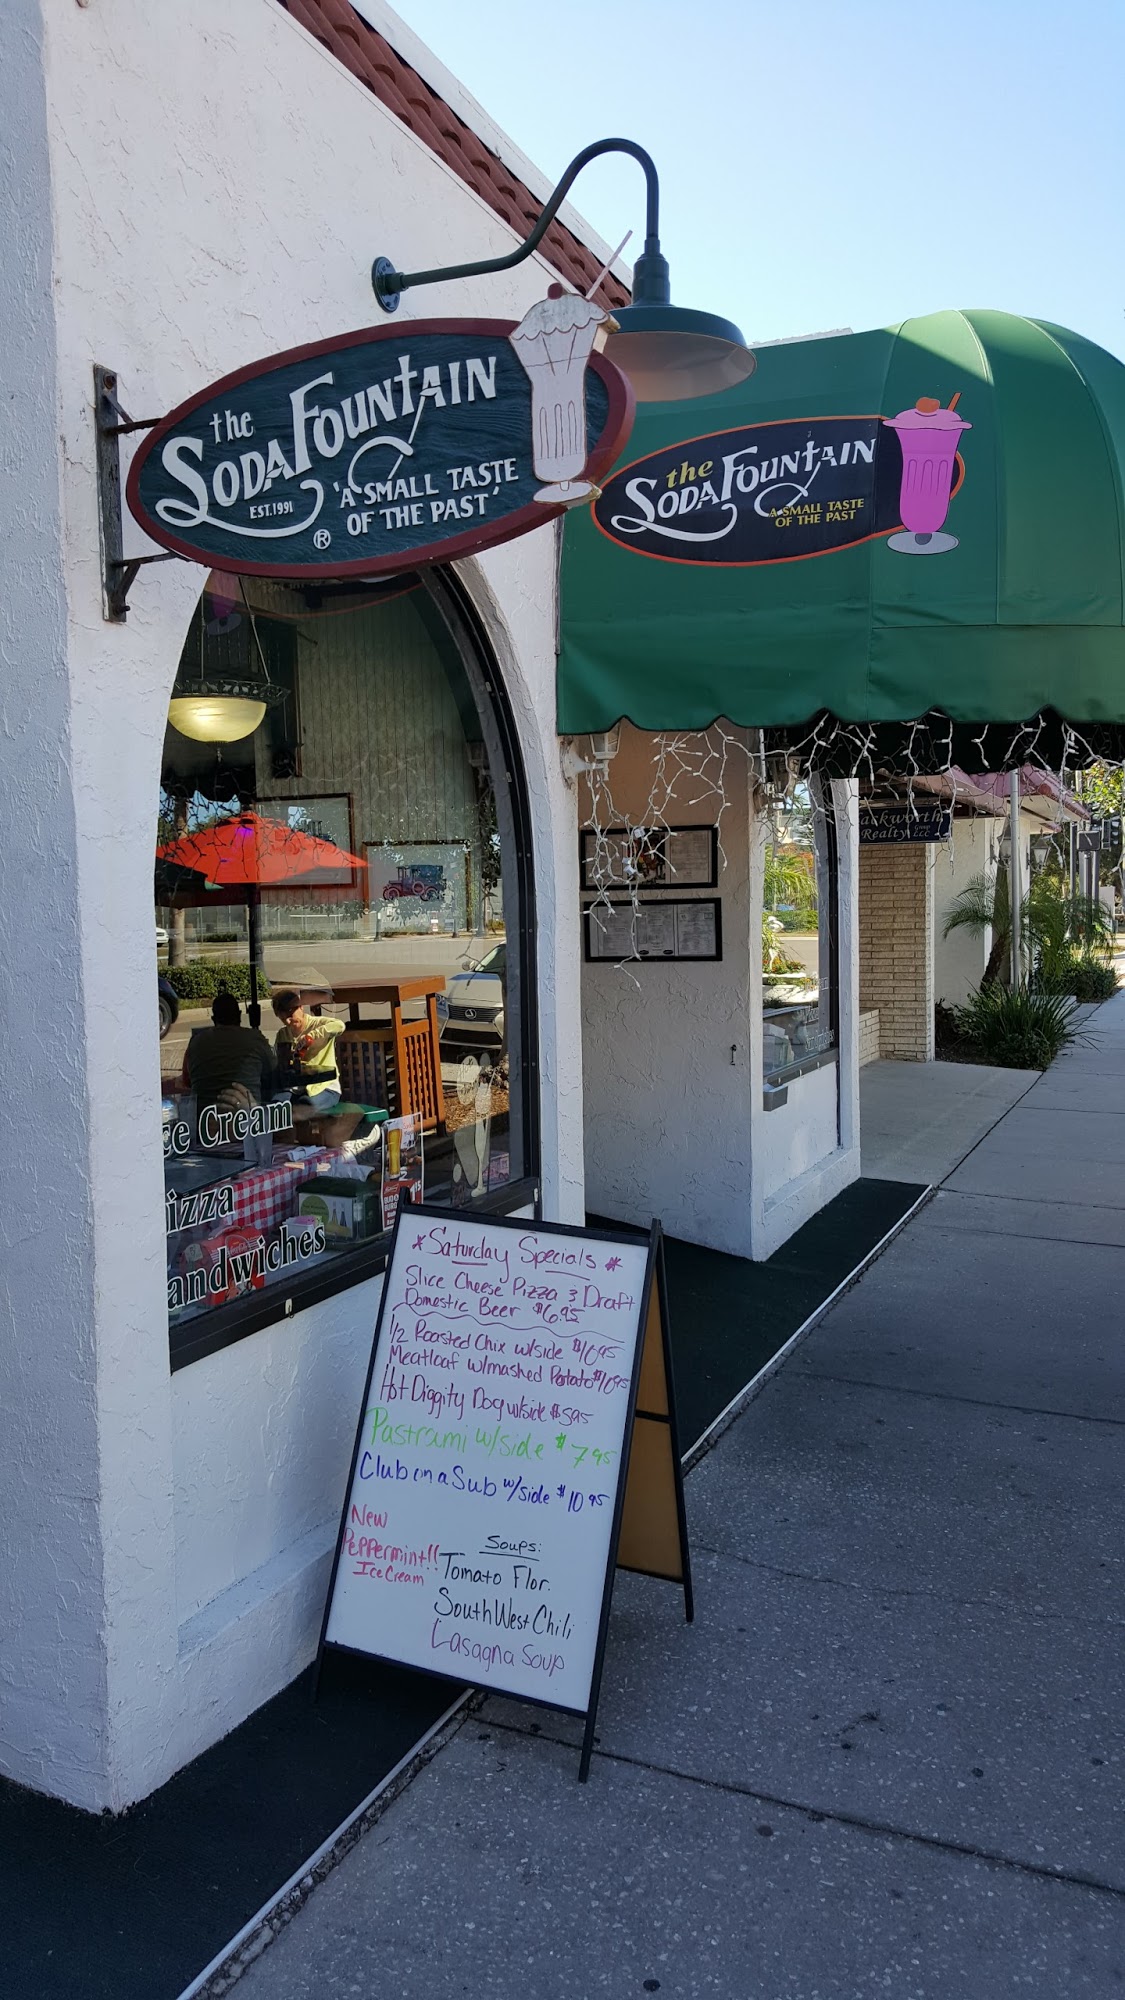 the
SODA FOUNTAIN
EST.1991
'A SMALL TASTE
OF THE PAST'
®
the
SODA FOUNTAIN
A SMALL TASTE
OF THE PAST
ackworth
Realty Group LLC
ce Cream
izza
andwiches
* Saturday Specials *
Slice Cheese Pizza & Draft
Domestic Beer $6.95
1/2 Roasted Chix w/side $10.95
Meatloaf w/mashed Potato $10.95
Hot Diggity Dog w/side $5.95
Pastrami w/side $7.95
Club on a Sub w/side $10.95
New
Peppermint!!
Ice Cream
Soups:
Tomato Flor.
SouthWest Chili
Lasagna Soup